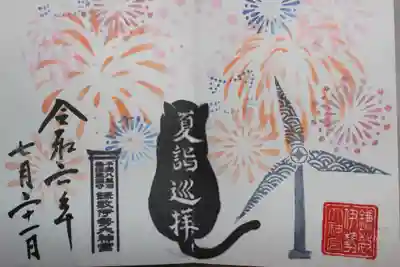 夏詣巡拝
令和六年
七月二十一日
鎌数
伊勢
大神宮